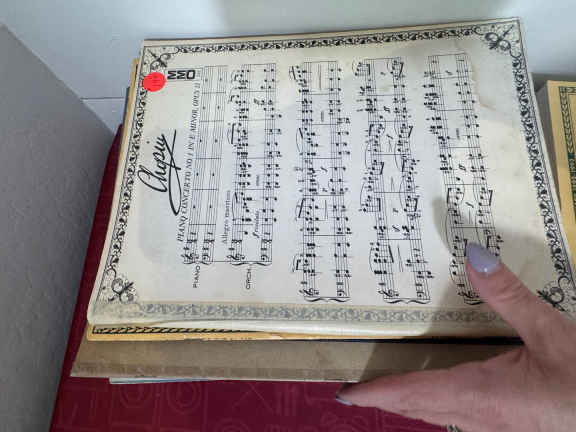 MMO
Chopin
PIANO CONCERTO NO. 1 IN E MINOR, OPUS 11
PIANO
Allegro maestoso
ORCH.